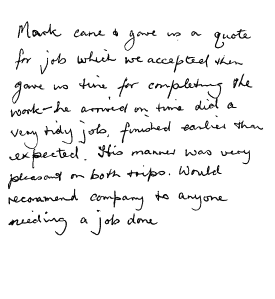 Mark came & gave us a quote
for job which we accepted then
gave us time for completing the
work - he arrived on time did a
very tidy job, finished earlier than
expected. His manner was very
pleasant on both trips. Would
recommend company to anyone
needing a job done